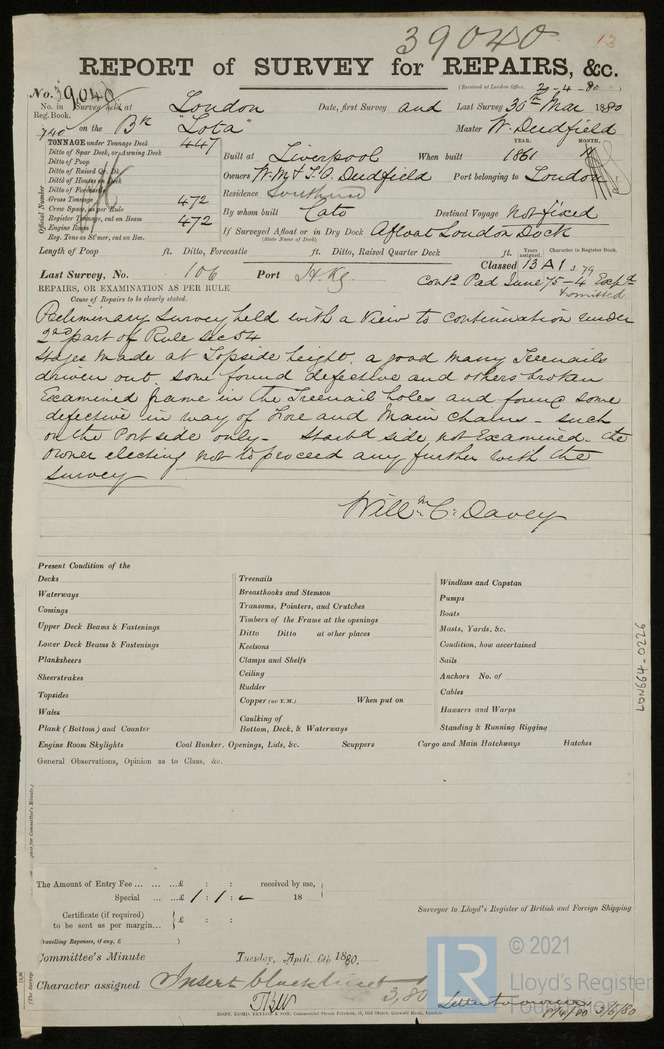 39040
13
REPORT of SURVEY for REPAIRS, &c.
(Received at London Office, 29-4-80)
No. 39,040
No. in Reg. Book. Survey held at London Date, first Survey and Last Survey 30th Mar 1880
740 on the Bk "Lota" Master W. Dudfield
TONNAGE under Tonnage Deck 447
Ditto of Spar Deck, or Awning Deck
Ditto of Poop
Ditto of Raised Qr. Dk.
Ditto of Houses on Deck
Ditto of Forecastle
Gross Tonnage 472
Crew Space, as per Rule
Register Tonnage, cut on Beam 472
Engine Room
Reg. Tons as St'mer, cut on Bm.
Official Number
YEAR. MONTH.
Built at Liverpool When built 1861 4
Owners W. M & T. O. Dudfield Port belonging to London
Residence Southend
By whom built Cato Destined Voyage Not fixed
If Surveyed Afloat or in Dry Dock Afloat London Dock
(State Name of Dock)
Length of Poop ft. Ditto, Forecastle ft. Ditto, Raised Quarter Deck ft.
Years assigned. Character in Register Book.
Last Survey, No. 106 Port H. Kg. Classed 13 A1 2.79
Contd Pad June 75-4 Expd
& omitted
REPAIRS, OR EXAMINATION AS PER RULE
Cause of Repairs to be clearly stated.
Preliminary Survey held with a View to continuation under
2nd part of Rule Sec 54
Stages made at Topside height, a good many Treenails
driven out some found defective and others broken
Examined frame in the Treenail holes and found some
defective in way of Fore and Main Chains - such
on the Port side only - Starbd side not Examined - the
owner electing not to proceed any further with the
survey
Willm C. Davey
Present Condition of the
Decks
Waterways
Comings
Upper Deck Beams & Fastenings
Lower Deck Beams & Fastenings
Planksheers
Sheerstrakes
Topsides
Wales
Plank (Bottom) and Counter
Treenails
Breasthooks and Stemson
Transoms, Pointers, and Crutches
Timbers of the Frame at the openings
Ditto Ditto at other places
Keelsons
Clamps and Shelfs
Ceiling
Rudder
Copper (or Y.M.) When put on
Caulking of
Bottom, Deck, & Waterways
Windlass and Capstan
Pumps
Boats
Masts, Yards, &c.
Condition, how ascertained
Sails
Anchors No. of
Cables
Hawsers and Warps
Standing & Running Rigging
Engine Room Skylights Coal Bunker, Openings, Lids, &c. Scuppers Cargo and Main Hatchways Hatches
General Observations, Opinion as to Class, &c.
LON664-0226
The Amount of Entry Fee ... ... ...£ : : received by me,
Special ... ...£ 1 : 1 : - 18
Certificate (if required)
to be sent as per margin... £ : :
Travelling Expenses, if any, £
Surveyor to Lloyd's Register of British and Foreign Shipping
Committee's Minute Tuesday, April 6th 1880.
Character assigned Insert black line 3,80
Letter to owner
8/4/80 3/6/80
© 2021
LR
Lloyd's Register
Foundation